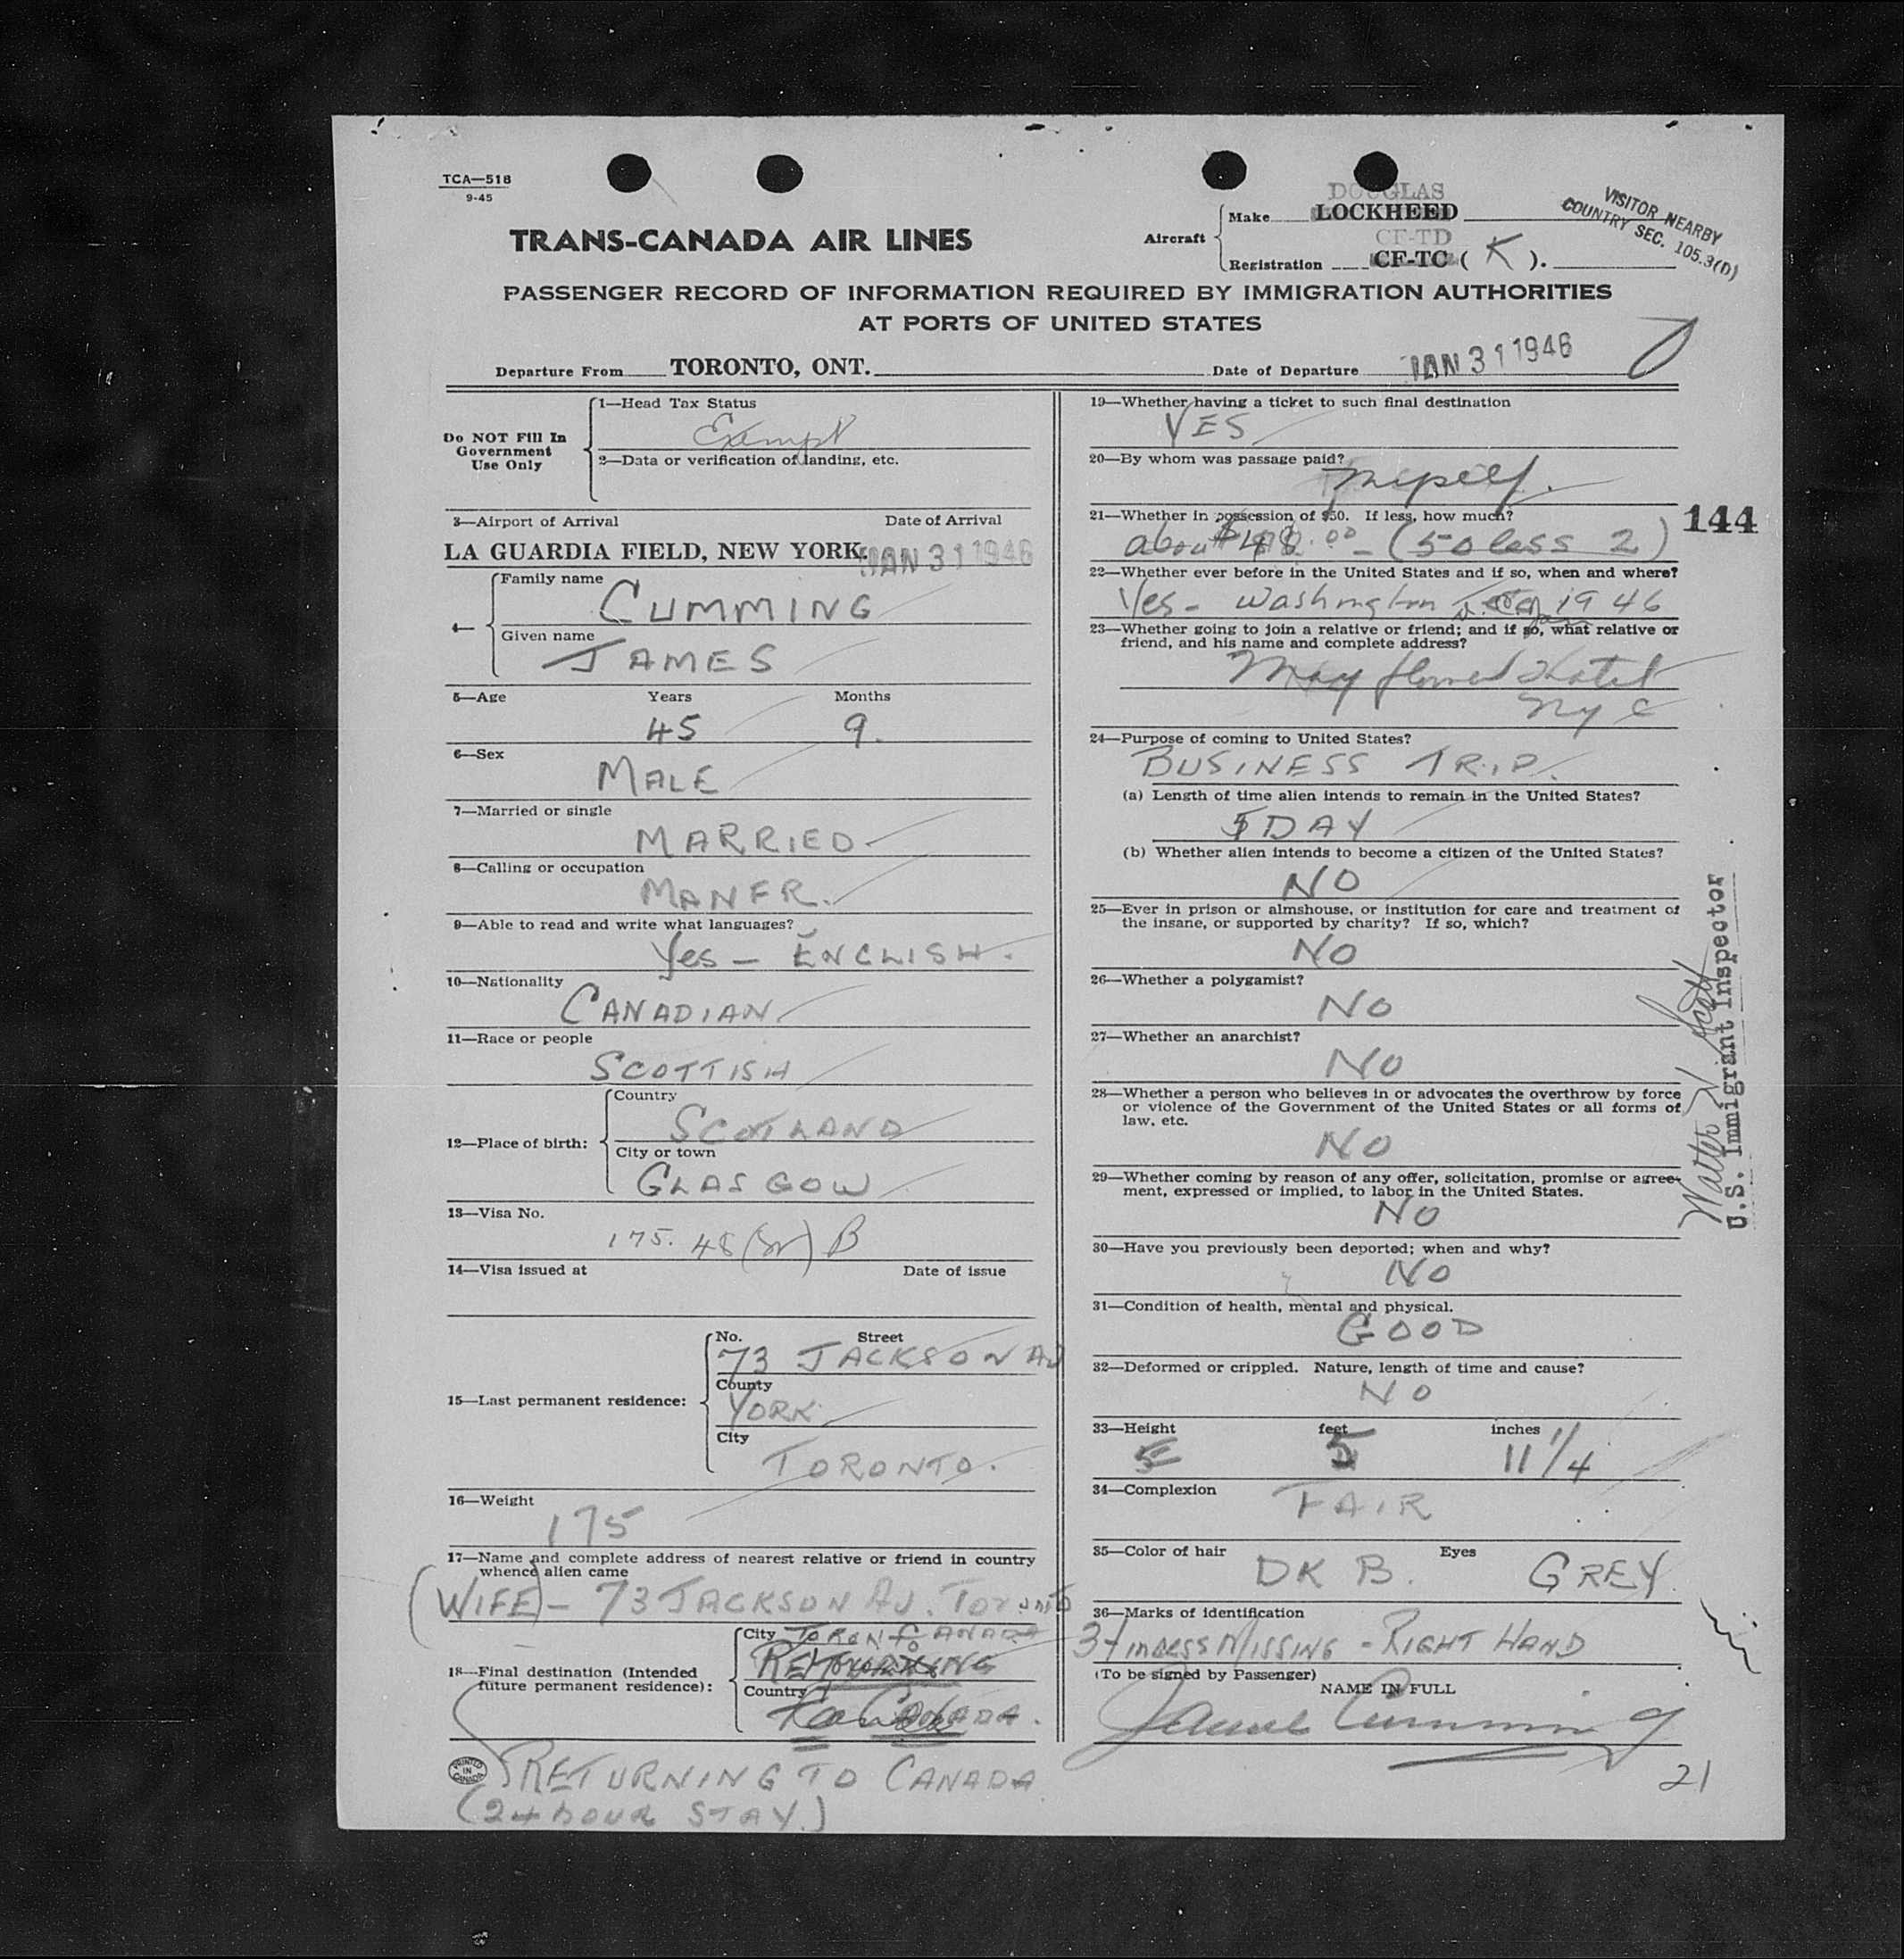 TCA—518
9-45
TRANS-CANADA AIR LINES
Aircraft
Make DOUGLAS
LOCKHEED
CF-TD
Registration CF-TC ( K ).
VISITOR NEARBY
COUNTRY SEC. 105.3(D)
PASSENGER RECORD OF INFORMATION REQUIRED BY IMMIGRATION AUTHORITIES
AT PORTS OF UNITED STATES
Departure From TORONTO, ONT.
Date of Departure JAN 31 1946
Do NOT Fill In
Government
Use Only
1—Head Tax Status
Exempt
2—Data or verification of landing, etc.
3—Airport of Arrival Date of Arrival
LA GUARDIA FIELD, NEW YORK. JAN 31 1946
4—
Family name
CUMMING
Given name
JAMES
5—Age Years Months
45 9.
6—Sex
MALE
7—Married or single
MARRIED
8—Calling or occupation
MANFR.
9—Able to read and write what languages?
Yes — ENGLISH.
10—Nationality
CANADIAN
11—Race or people
SCOTTISH
12—Place of birth:
Country
SCOTLAND
City or town
GLASGOW
13—Visa No.
175. 48 ( ) B
14—Visa issued at Date of issue
15—Last permanent residence:
No. Street
73 JACKSON AV
County
YORK
City
TORONTO.
16—Weight
175
17—Name and complete address of nearest relative or friend in country
whence alien came
(WIFE) — 73 JACKSON AV. Toronto
18—Final destination (Intended
future permanent residence):
City TORONTO CANADA
RETURNING
Country
CANADA.
RETURNING TO CANADA
(24 HOUR STAY.)
PRINTED
IN
CANADA
19—Whether having a ticket to such final destination
YES
20—By whom was passage paid?
Myself.
21—Whether in possession of $50. If less, how much?
about $48.00 — (50 less 2)
22—Whether ever before in the United States and if so, when and where?
Yes — Washington Jan 1946
23—Whether going to join a relative or friend; and if so, what relative or
friend, and his name and complete address?
Mayflower Hotel
NYC
24—Purpose of coming to United States?
BUSINESS TRIP.
(a) Length of time alien intends to remain in the United States?
1 DAY
(b) Whether alien intends to become a citizen of the United States?
NO
25—Ever in prison or almshouse, or institution for care and treatment of
the insane, or supported by charity? If so, which?
NO
26—Whether a polygamist?
NO
27—Whether an anarchist?
NO
28—Whether a person who believes in or advocates the overthrow by force
or violence of the Government of the United States or all forms of
law, etc.
NO
29—Whether coming by reason of any offer, solicitation, promise or agree-
ment, expressed or implied, to labor in the United States.
NO
30—Have you previously been deported; when and why?
NO
31—Condition of health, mental and physical.
GOOD
32—Deformed or crippled. Nature, length of time and cause?
NO
33—Height feet inches
5 5 11 1/4
34—Complexion
FAIR
35—Color of hair Eyes
DK B. GREY
36—Marks of identification
3 FINGERS MISSING — RIGHT HAND
(To be signed by Passenger)
NAME IN FULL
James Cumming
21
144
Walter Scott
U.S. Immigrant Inspector